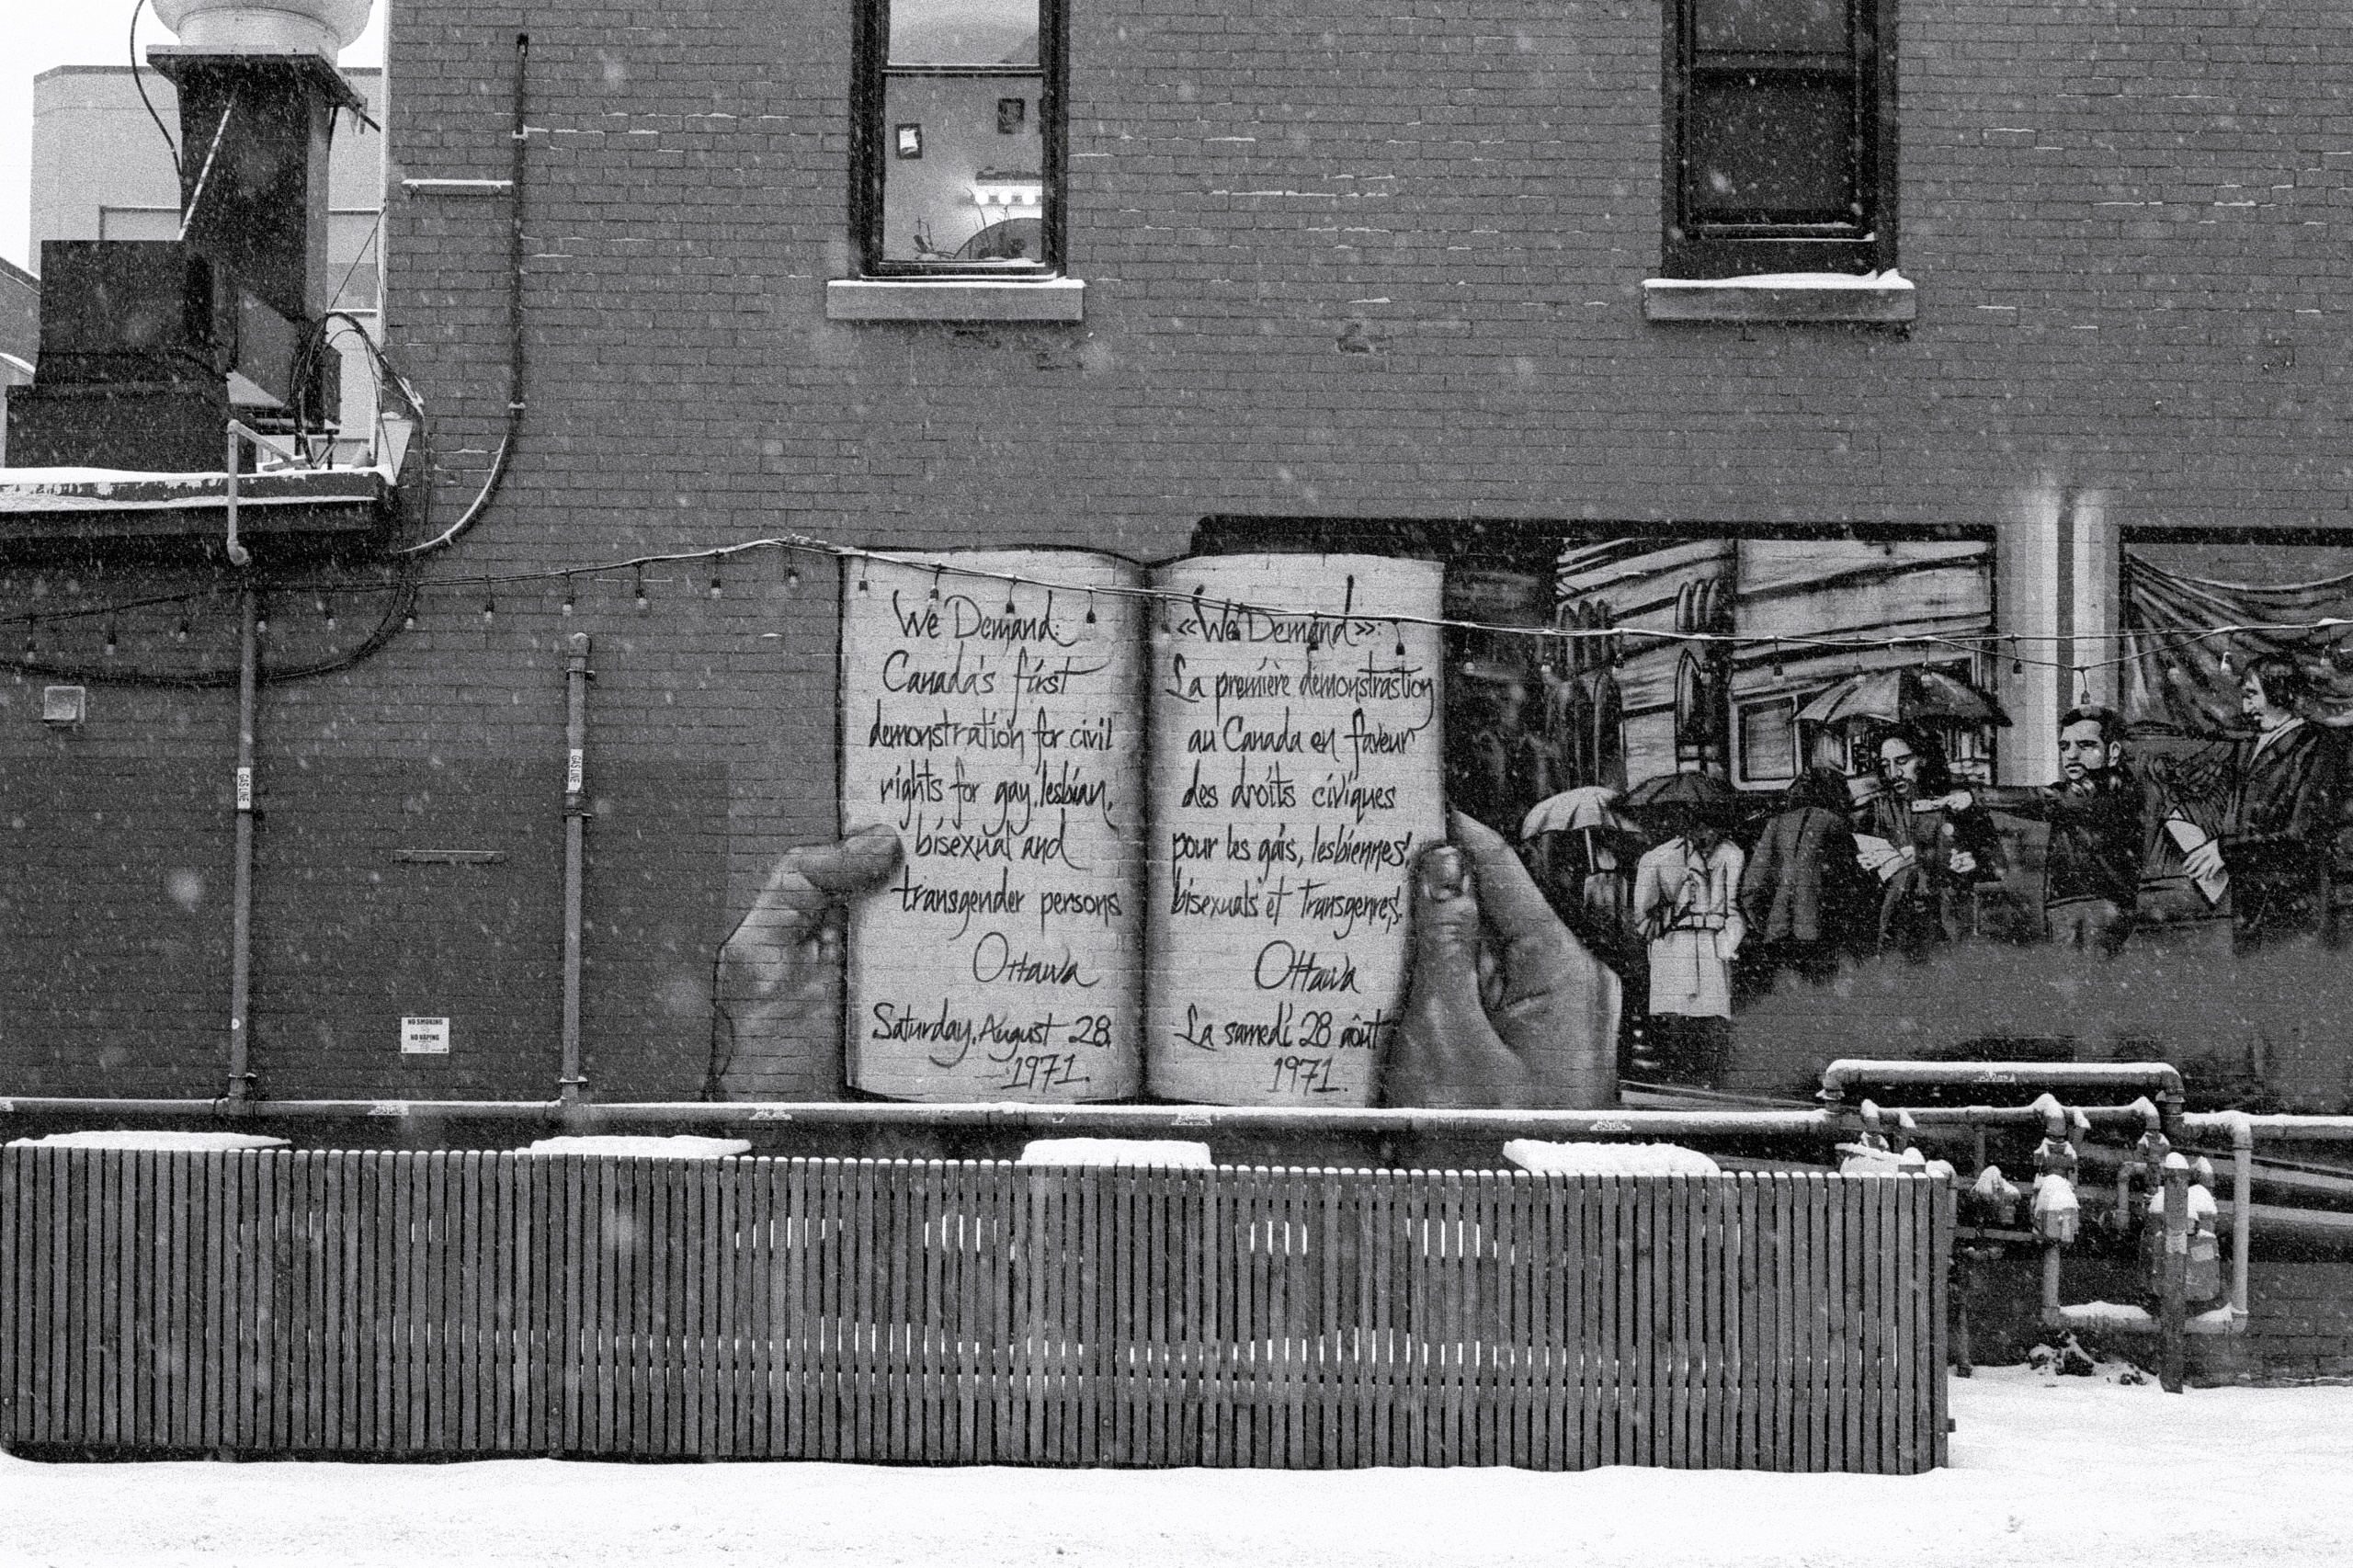 We Demand:
Canada's first
demonstration for civil
rights for gay, lesbian,
bisexual and
transgender persons
Ottawa
Saturday, August 28,
1971.
«We Demand»:
La première démonstrastion
au Canada en faveur
des droits civiques
pour les gais, lesbiennes,
bisexuals et transgenres,
Ottawa
La samedi 28 août
1971.
GAS LINE
GAS LINE
NO SMOKING
NO VAPING